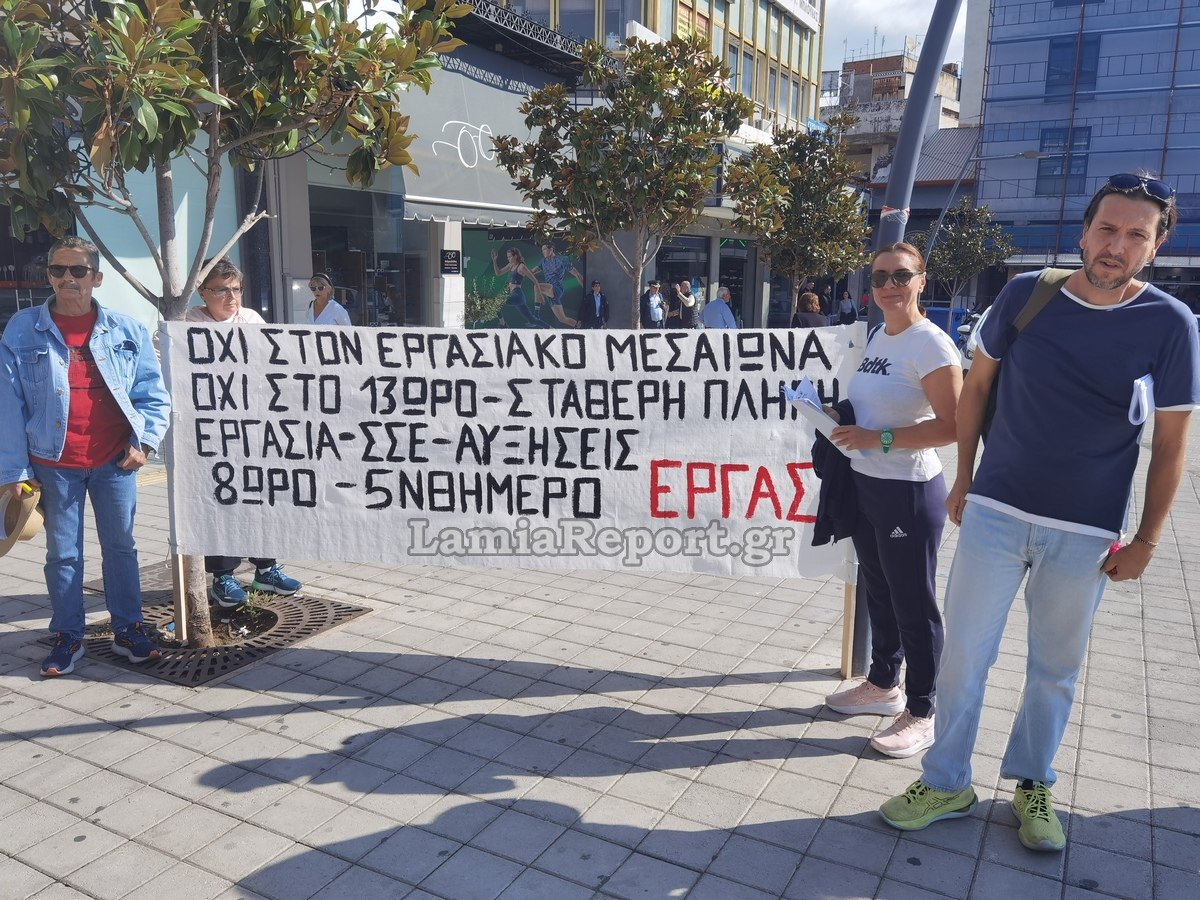 ΟΧΙ ΣΤΟΝ ΕΡΓΑΣΙΑΚΟ ΜΕΣΑΙΩΝΑ
ΟΧΙ ΣΤΟ 13ΩΡΟ-ΣΤΑΘΕΡΗ ΠΛΗΡΗ
ΕΡΓΑΣΙΑ-ΣΣΕ-ΑΥΞΗΣΕΙΣ
8ΩΡΟ-5ΝΘΗΜΕΡΟ ΕΡΓΑΣ
LamiaReport.gr
adidas